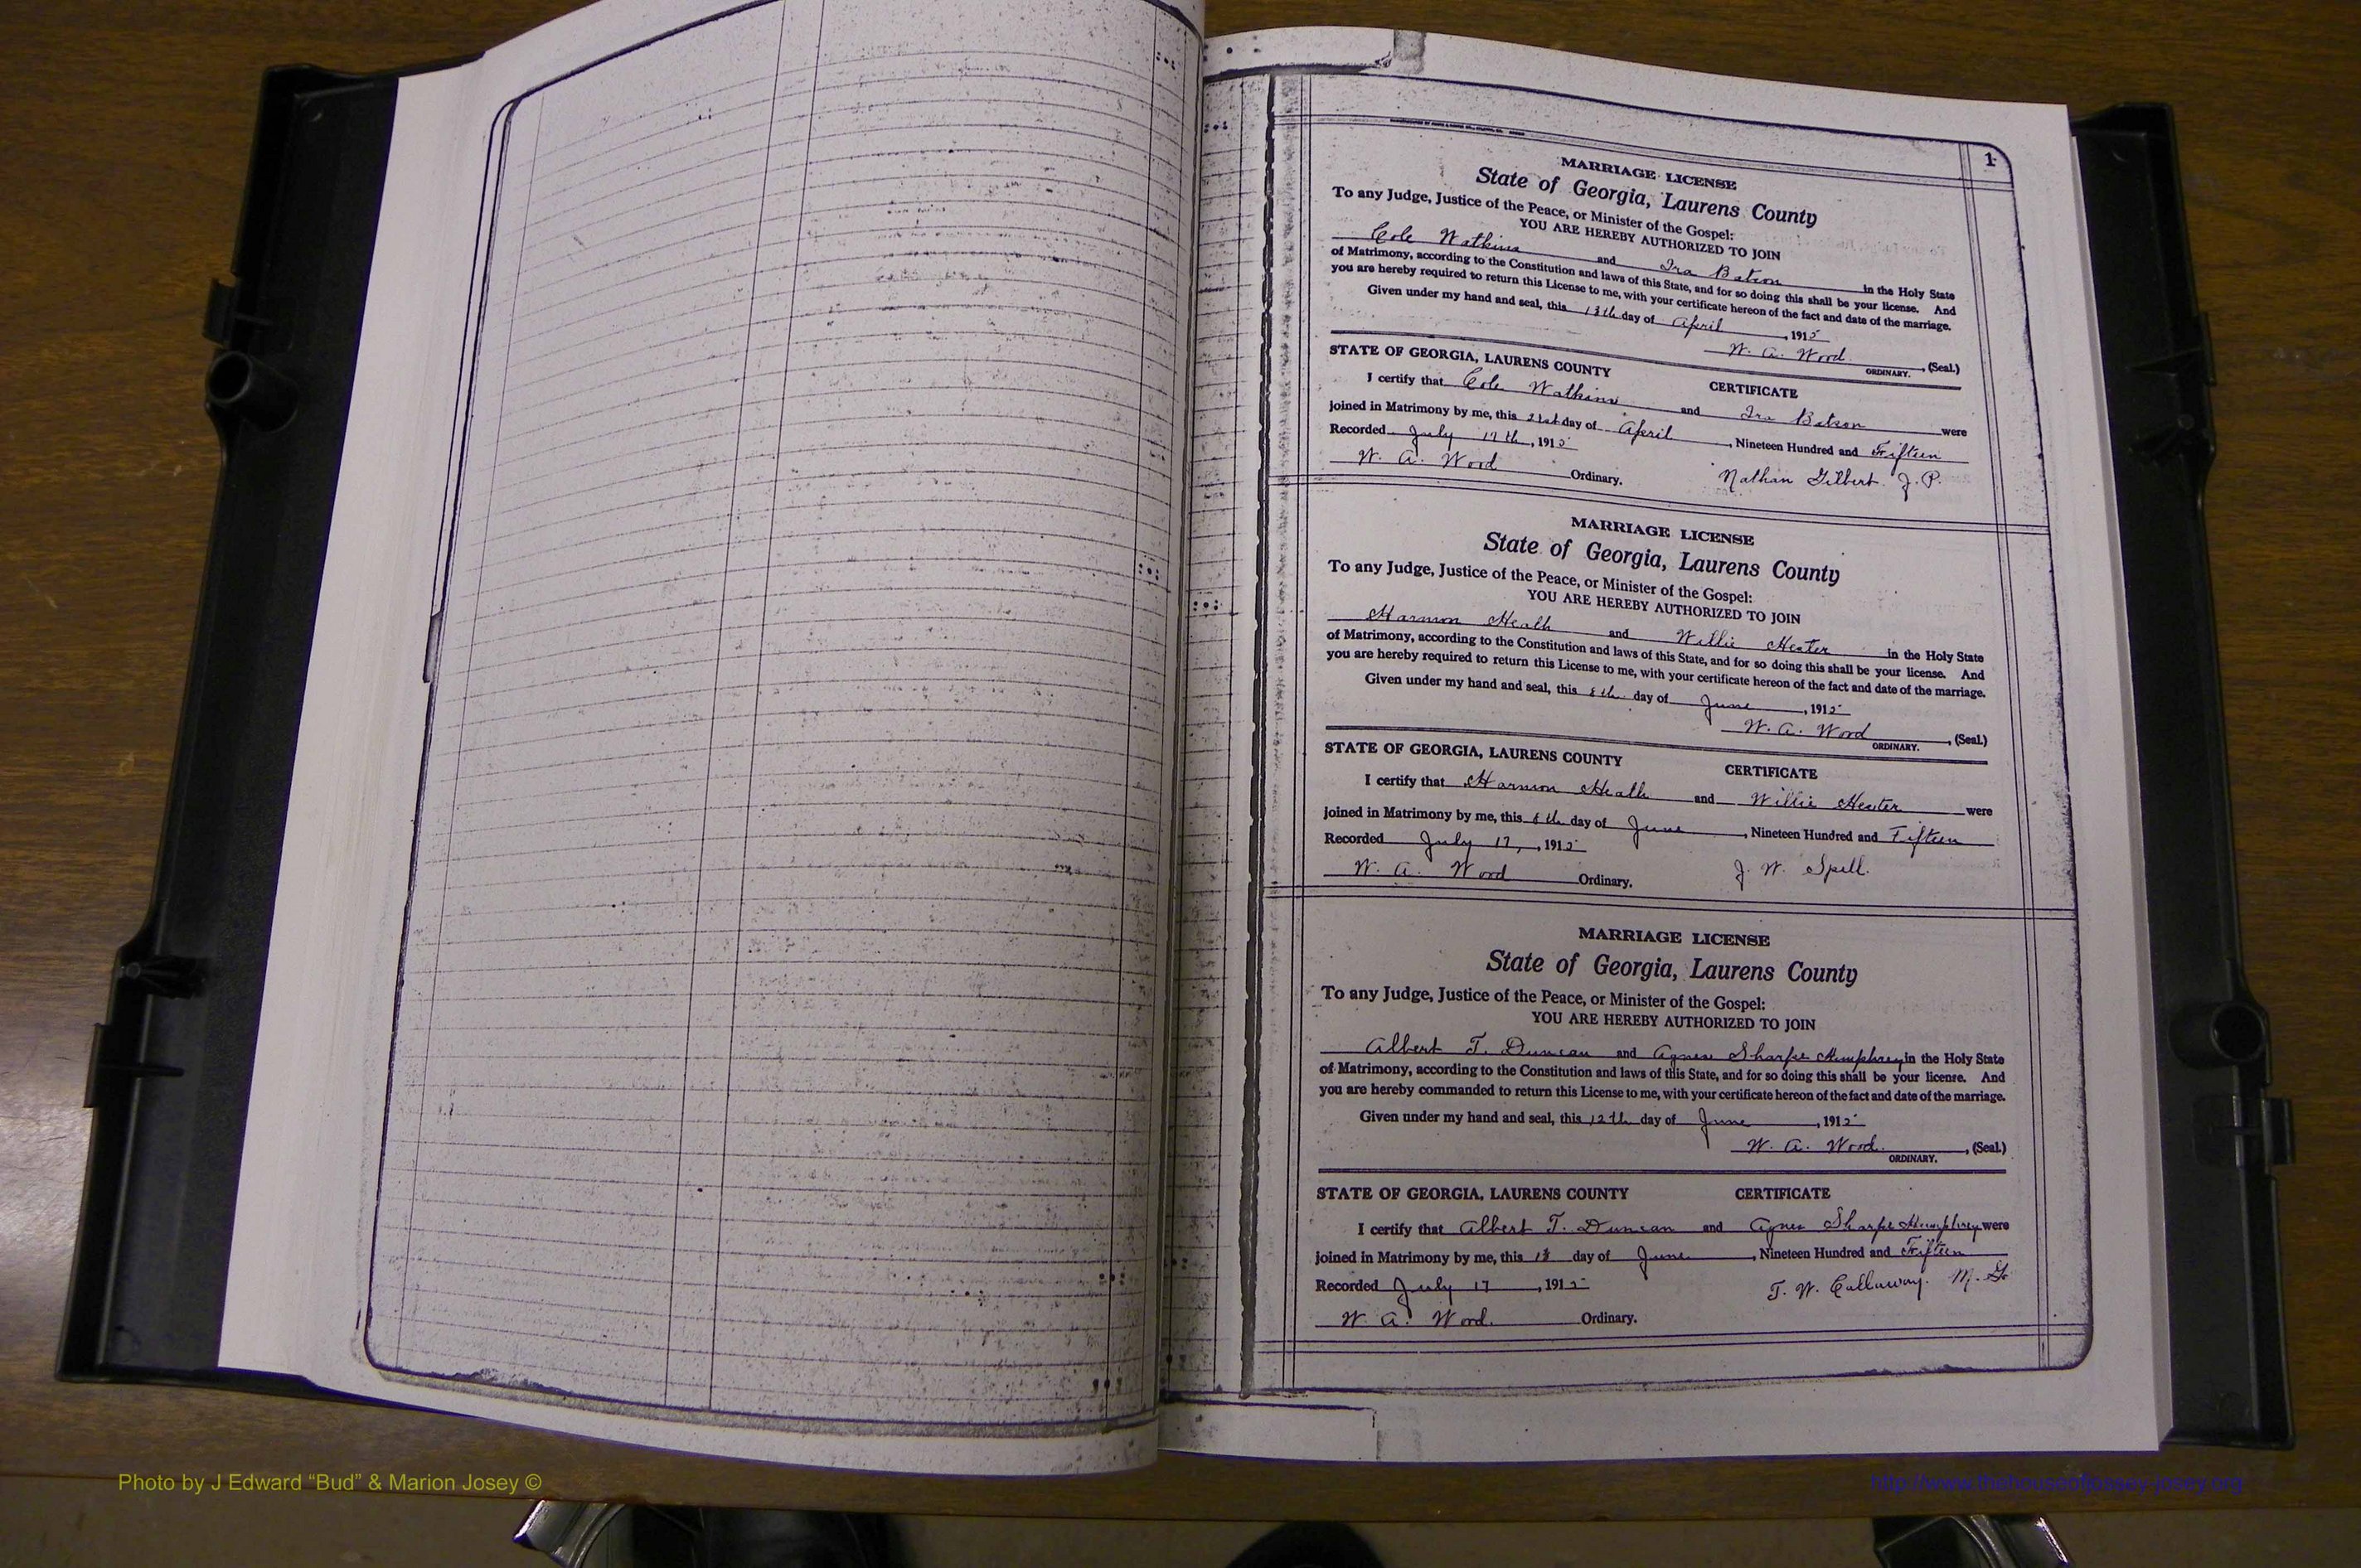 1
MARRIAGE LICENSE
State of Georgia, Laurens County
To any Judge, Justice of the Peace, or Minister of the Gospel:
YOU ARE HEREBY AUTHORIZED TO JOIN
Cole Watkins and Ira Batson in the Holy State
of Matrimony, according to the Constitution and laws of this State, and for so doing this shall be your license. And
you are hereby required to return this License to me, with your certificate hereon of the fact and date of the marriage.
Given under my hand and seal, this 13th day of April, 1915
W. A. Wood, (Seal.)
ORDINARY.
STATE OF GEORGIA, LAURENS COUNTY CERTIFICATE
I certify that Cole Watkins and Ira Batson were
joined in Matrimony by me, this 21st day of April, Nineteen Hundred and Fifteen
Recorded July 17th, 1915
W. A. Wood Ordinary. Nathan Gilbert J.P.
MARRIAGE LICENSE
State of Georgia, Laurens County
To any Judge, Justice of the Peace, or Minister of the Gospel:
YOU ARE HEREBY AUTHORIZED TO JOIN
Harmon Heath and Willie Hester in the Holy State
of Matrimony, according to the Constitution and laws of this State, and for so doing this shall be your license. And
you are hereby required to return this License to me, with your certificate hereon of the fact and date of the marriage.
Given under my hand and seal, this 8th day of June, 1915
W. A. Wood, (Seal.)
ORDINARY.
STATE OF GEORGIA, LAURENS COUNTY CERTIFICATE
I certify that Harmon Heath and Willie Hester were
joined in Matrimony by me, this 8th day of June, Nineteen Hundred and Fifteen
Recorded July 17, 1915
W. A. Wood Ordinary. J. W. Spell.
MARRIAGE LICENSE
State of Georgia, Laurens County
To any Judge, Justice of the Peace, or Minister of the Gospel:
YOU ARE HEREBY AUTHORIZED TO JOIN
Albert T. Duncan and Agnes Sharpe Humphrey in the Holy State
of Matrimony, according to the Constitution and laws of this State, and for so doing this shall be your license. And
you are hereby commanded to return this License to me, with your certificate hereon of the fact and date of the marriage.
Given under my hand and seal, this 12th day of June, 1915
W. A. Wood, (Seal.)
ORDINARY.
STATE OF GEORGIA, LAURENS COUNTY CERTIFICATE
I certify that Albert T. Duncan and Agnes Sharpe Humphrey were
joined in Matrimony by me, this 13 day of June, Nineteen Hundred and Fifteen
Recorded July 17, 1915 T. W. Callaway. M.G.
W. A. Wood. Ordinary.
Photo by J Edward “Bud” & Marion Josey ©
http://www.thehouseofjossey-josey.org